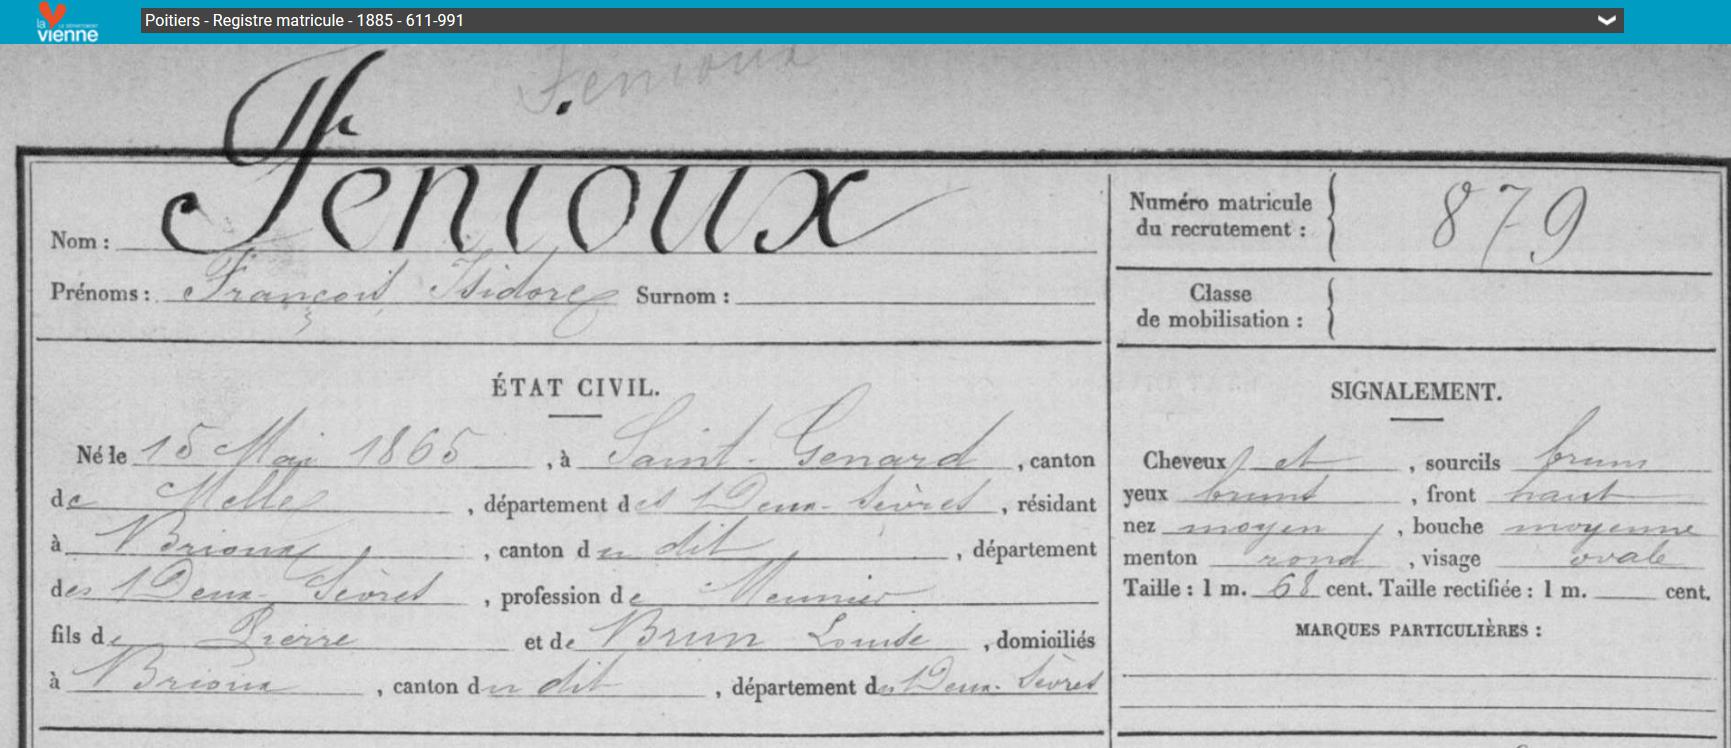 la vienne LE DÉPARTEMENT
Poitiers - Registre matricule - 1885 - 611-991
Fenioux
Nom : Fenioux
Prénoms : François, Isidore Surnom :
Numéro matricule du recrutement : 879
Classe de mobilisation :
ÉTAT CIVIL.
Né le 15 Mai 1865, à Saint-Genard, canton
de Melle, département des Deux-Sèvres, résidant
à Brioux, canton du dit, département
des Deux-Sèvres, profession de Meunier
fils de Pierre et de Brun Louise, domiciliés
à Brioux, canton du dit, département des Deux-Sèvres
SIGNALEMENT.
Cheveux et, sourcils bruns
yeux bruns, front haut
nez moyen, bouche moyenne
menton rond, visage ovale
Taille : 1 m. 68 cent. Taille rectifiée : 1 m. cent.
MARQUES PARTICULIÈRES :